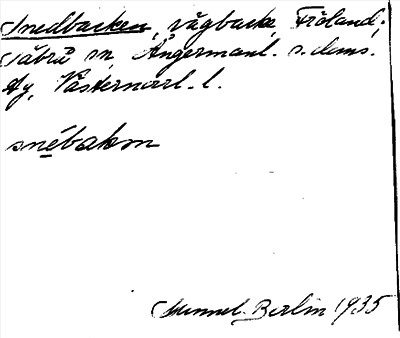 Snedbacken, vägbacke, Fröland,
Säbrå sn, Ångermanl. s. doms.
Ay, Västernorrl. l.
snébakm
Hummel-Berlin 1935